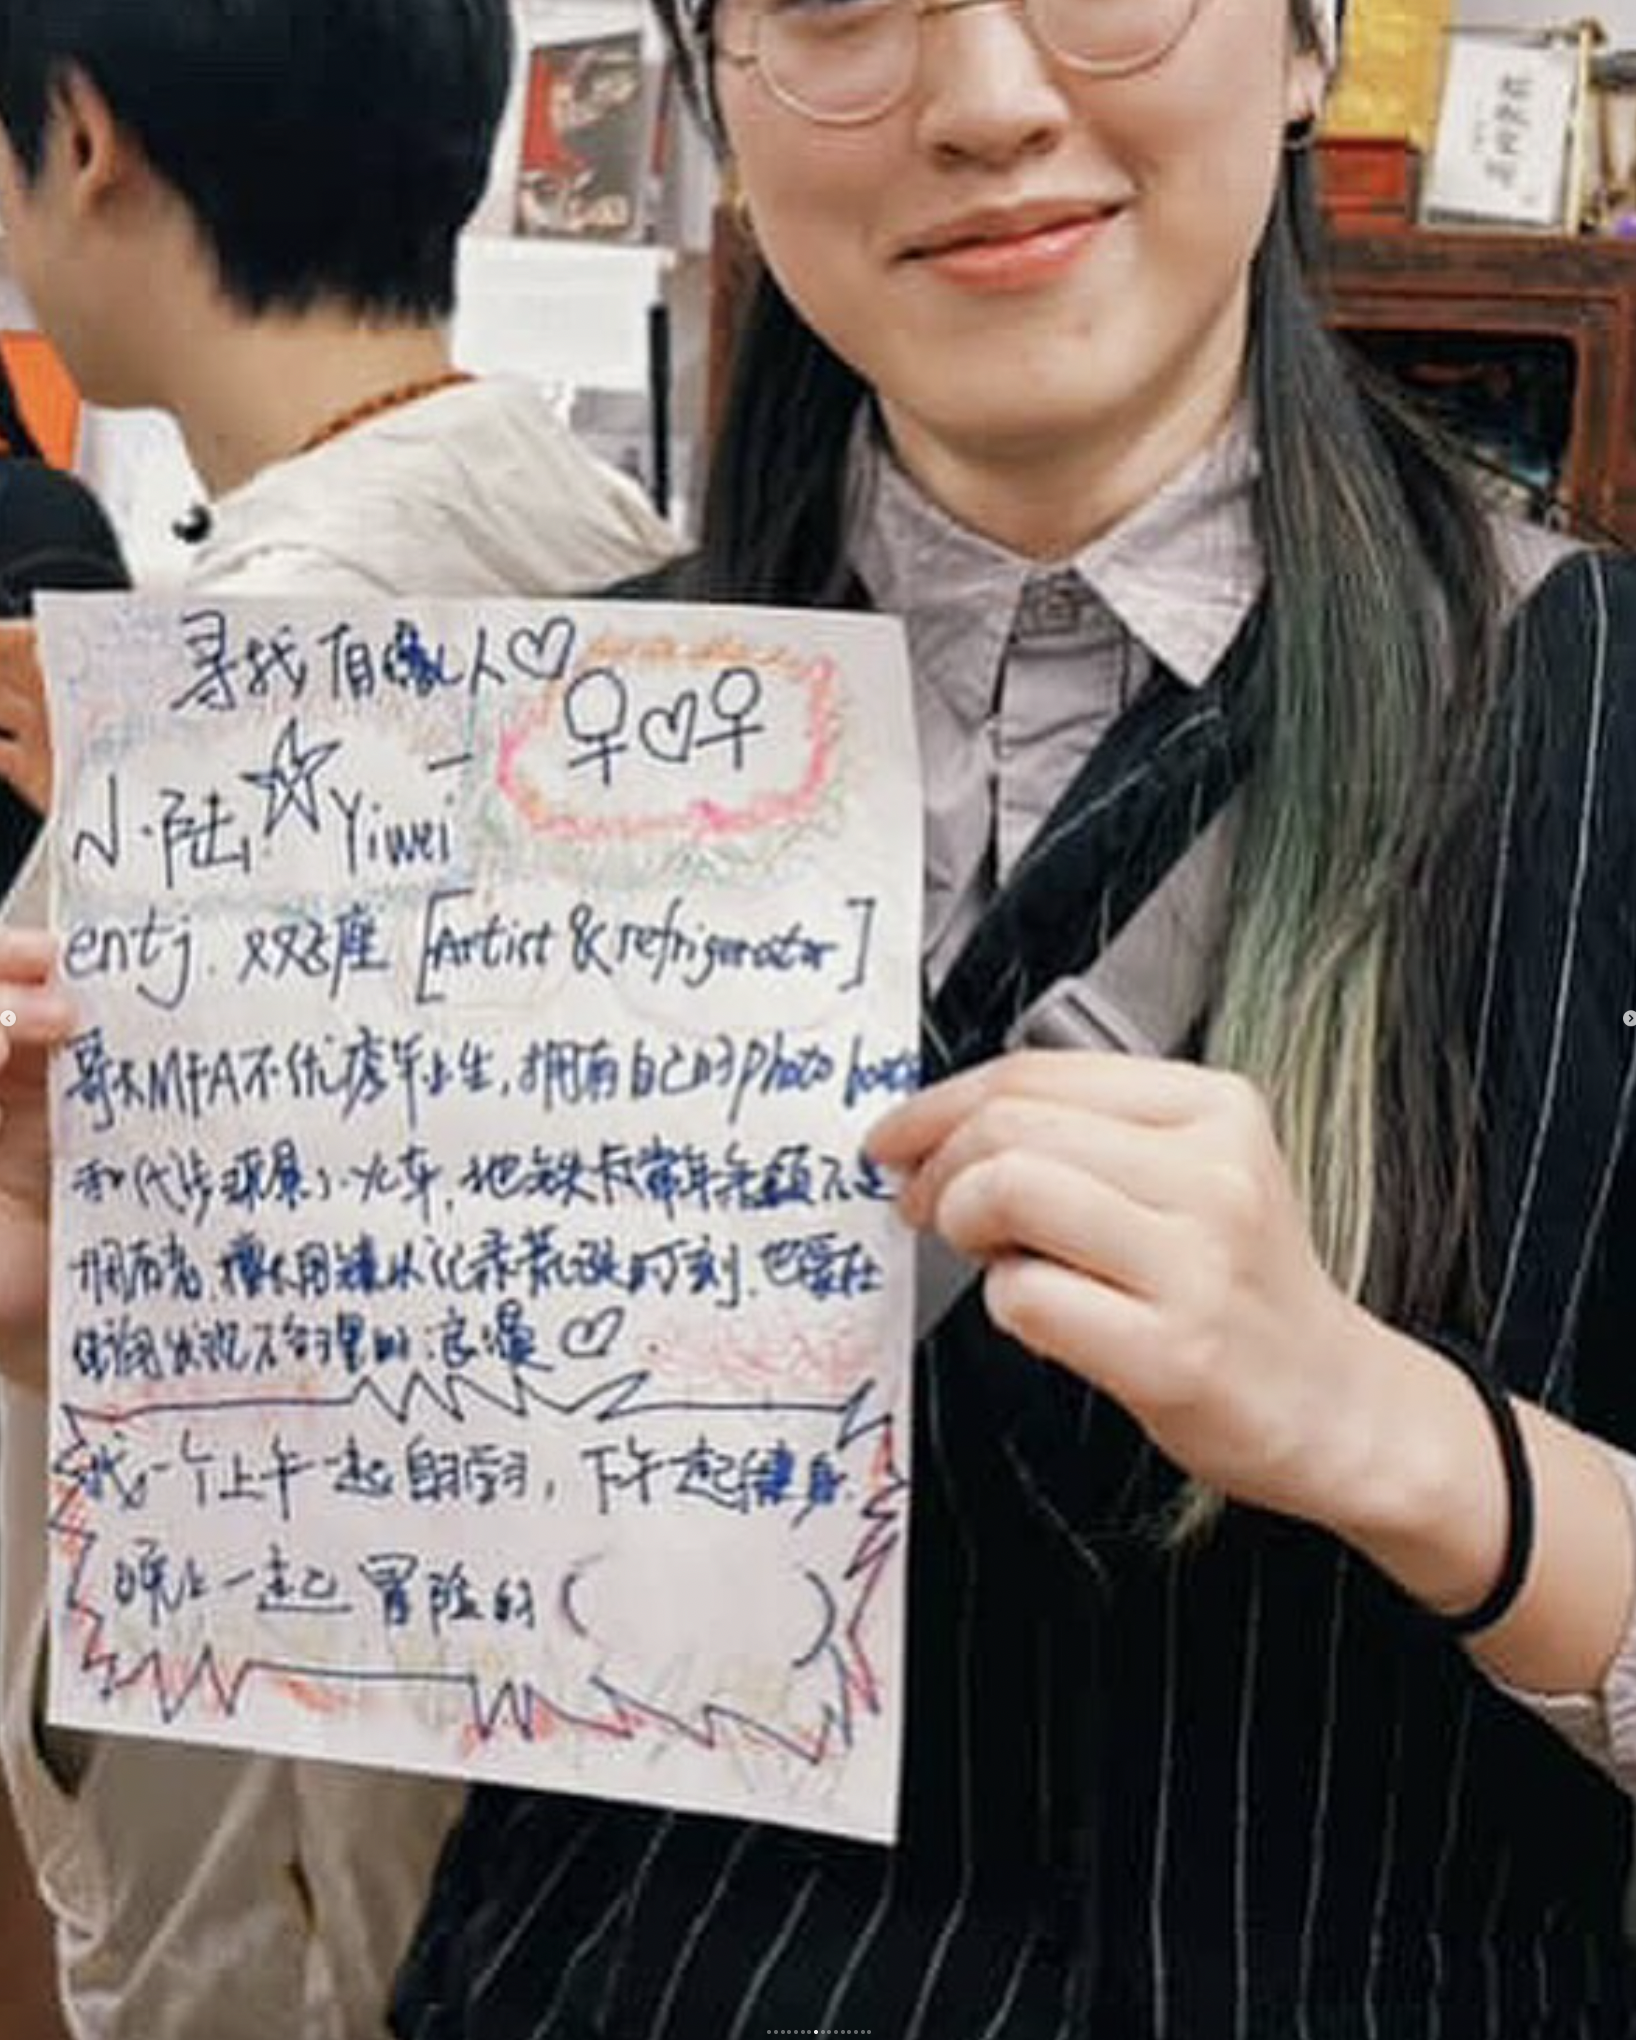 寻找有缘人♡
♀♡♀
小陆☆Yiwei
entj. 双子座 [Artist & refrigerator]
哥大MFA不优秀毕业生,拥有自己的photo booth
和(代涉 小火车,地铁卡常年余额不足
拥有者,擅长用镜头记录荒诞时刻,也爱在
发现不合理的浪漫♡.
找一个上午一起自习,下午一起健身.
晚上一起冒险的( )